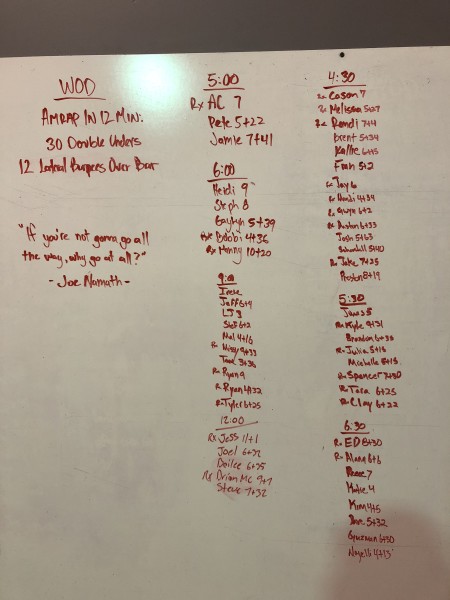 WOD
AMRAP IN 12 MIN:
30 Double Unders
12 Lateral Burpees Over Bar
"If you're not gonna go all
the way, why go at all?"
- Joe Namath -
5:00
Rx AC 7
Pete 5+22
Jamie 7+41
6:00
Heidi 9
Steph 8
5+39
Rx Bobbi 4+36
Rx Manny 10+20
9:00
Irene
Jeff 6+4
LJ 3
6+2
Mal 4+16
Rx Missy 9+33
3+36
Rx Ryan 9
Rx Ryan 4+32
Rx Tyler 6+25
12:00
Rx Jess 11+1
Joel 6+32
6+35
Rx Brian Mc 9+7
Steve 7+32
4:30
Rx Cason 7
Rx Melissa 5+27
Rx Randi 7+4
Brent 5+34
Kallie 6+15
Fran 5+2
Rx Jay 6
Rx 4+34
Rx Gwyn 6+2
Rx Austin 6+33
Josh 5+63
5+40
Rx Jake 7+25
Preston 8+19
5:30
James 5
Rx Kyle 9+31
Brandon 6+38
Rx Julia 5+16
Michelle 5+15
Rx Spencer 7+30
Rx Tara 6+25
Rx Clay 6+22
6:30
Rx ED 8+30
Rx Alana 6+6
Reese 7
Katie 4
Kim 4+5
Dave 5+32
Guzman 6+30
4+13